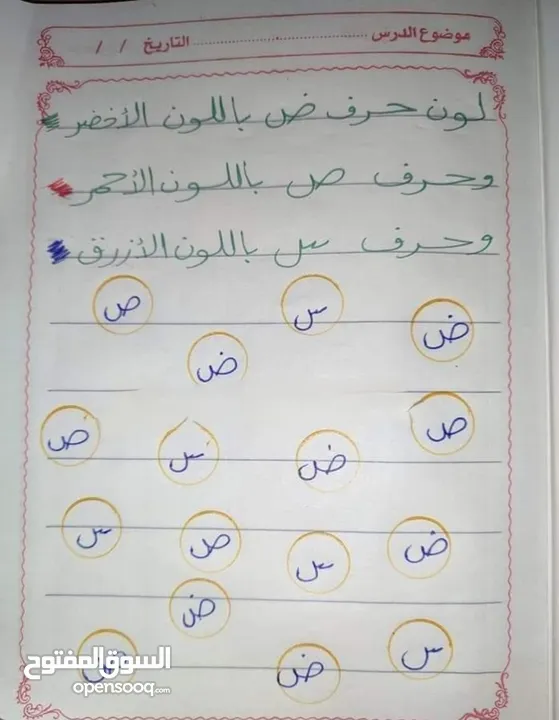 موضوع الدرس ........................ التاريخ / /
لون حرف ض باللون الأخضر
وحرف ص باللون الأحمر
وحرف س باللون الأزرق
ض س ص
ض
ص ض س ص
ض س ص س
ض
س ض ص
السوق المفتوح
opensooq.com